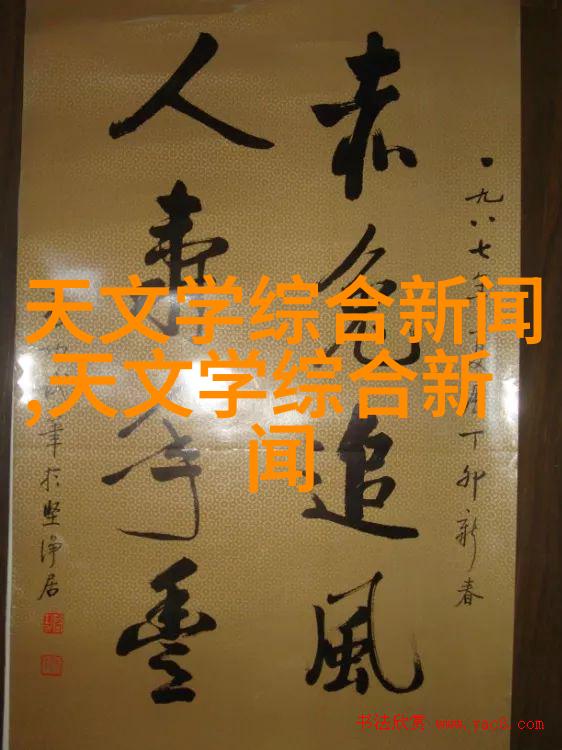 一九八七年
丁卯新春
赤兔追風
人寿年豐
坚净居
天文学综合新闻
,天文学综合新
闻
书法欣赏 www.yac8.com